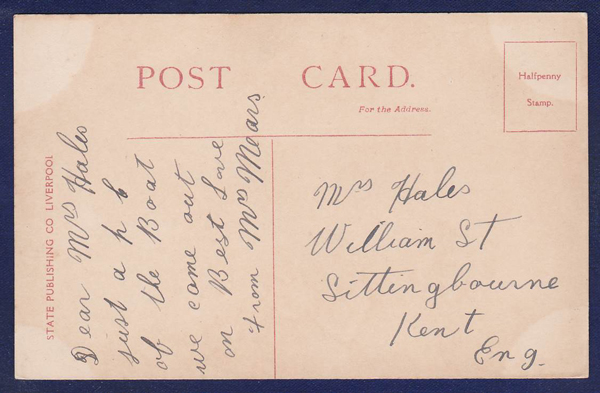 POST CARD.
For the Address.
Halfpenny
Stamp.
STATE PUBLISHING CO LIVERPOOL
Dear Mrs Hales
just a p b
of the Boat
we come out
on Best Love
from Mrs Mears
Mrs Hales
William St
Sittingbourne
Kent
Eng.